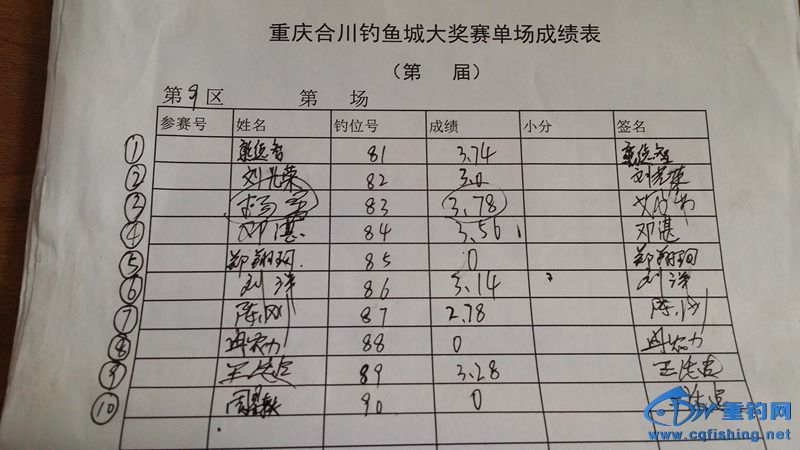 重庆合川钓鱼城大奖赛单场成绩表
（第 届）
第9区 第 场
参赛号 姓名 钓位号 成绩 小分 签名
① 81 3.74
② 刘光荣 82 3.0 刘光荣
③ 83 3.78
④ 邓湛 84 3.56 邓湛
⑤ 85 0
⑥ 刘洋 86 3.14 刘洋
⑦ 陈刚 87 2.78 陈刚
⑧ 冉农力 88 0 冉农力
⑨ 89 3.28
⑩ 90 0
重钓网
www.cqfishing.net